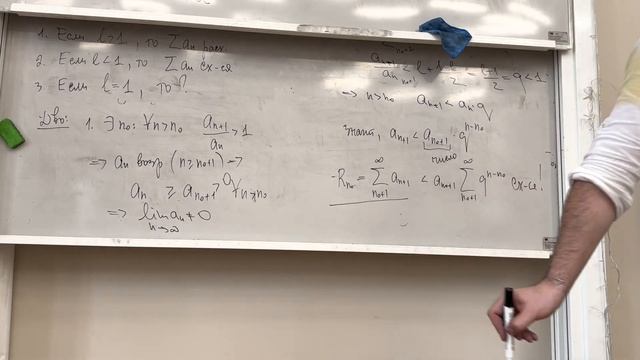 1. Если l>1, то Σan расх.
2. Если l<1, то Σan сх-ся
3. Если l=1, то ?
Док-во: 1. ∃n₀: ∀n>n₀ aₙ₊₁/aₙ >1
⇒ an возр (n≥n₀+1) →
an ≥ an₀+1 > 0 ∀n>n₀
⇒ lim an ≠ 0
n→∞
aₙ₊₁/aₙ < l + 1-l/2 = l+1/2 = q < 1
⇒ n>n₀ an+1 < an·q
Значит, an+1 < an₀+1 · q^(n-n₀)
число
Rn₀ = Σ(n₀+1, ∞) an+1 < an₀+1 Σ(n₀+1, ∞) q^(n-n₀) сх-ся!